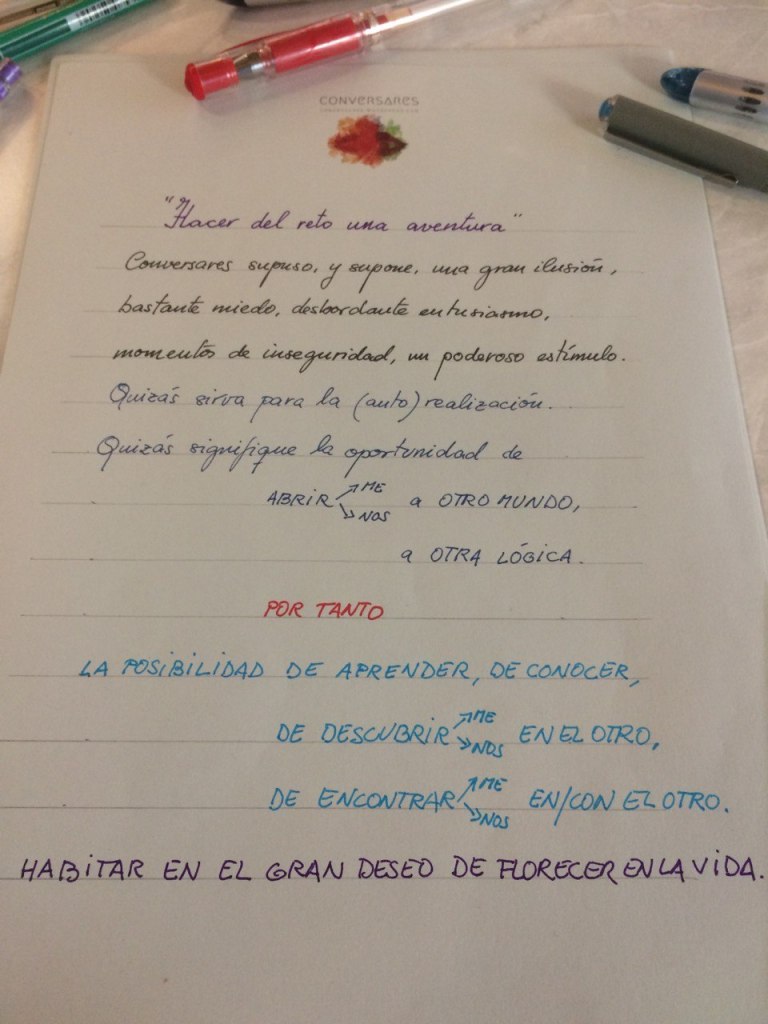 CONVERSARES
"Hacer del reto una aventura"
Conversares supuso, y supone, una gran ilusión,
bastante miedo, desbordante entusiasmo,
momentos de inseguridad, un poderoso estímulo.
Quizás sirva para la (auto) realización.
Quizás signifique la oportunidad de
ABRIR ↗ ME ↘ NOS a OTRO MUNDO,
a OTRA LÓGICA.
POR TANTO
LA POSIBILIDAD DE APRENDER, DE CONOCER,
DE DESCUBRIR ↗ ME ↘ NOS EN EL OTRO,
DE ENCONTRAR ↗ ME ↘ NOS EN/CON EL OTRO.
HABITAR EN EL GRAN DESEO DE FLORECER EN LA VIDA.